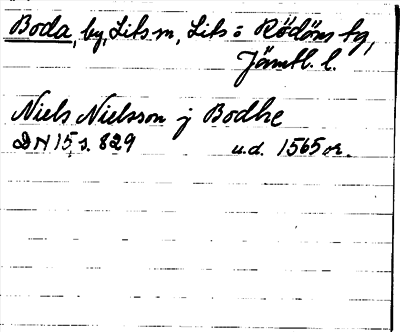 Boda, by, Lits sn, Lits o Rödöns tg,
Jämtl. l.
Niels Nielsson j Bodhe
DN 15, s. 829 u.d. 1565 or.